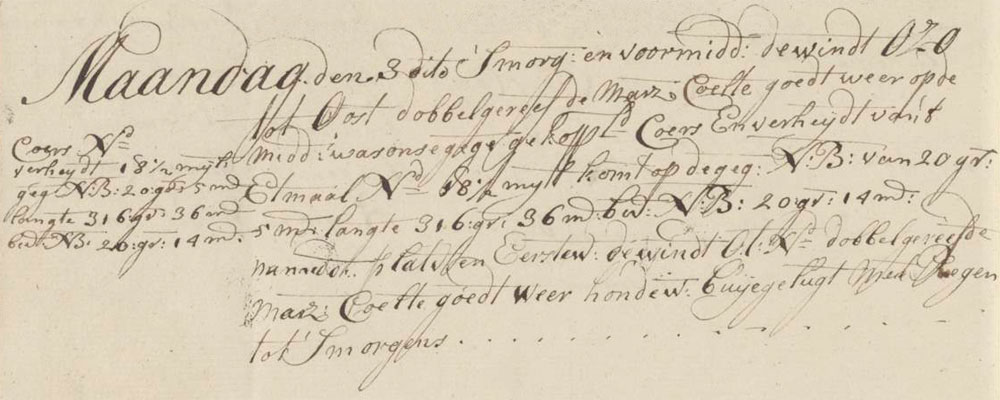 Maandag den 3 dito 'Smorg: en voormidd: de wint OZO
tot Oost dobbelgereefde Marz: Coelte goedt weer op de
midd: was onse gegg: gekoppld Coers En verheydt van't
Etmaal Nd 18½ myll komt op de geg: N:B: van 20 gr:
5 md: langte 316: gr: 36 md: bev: N:B: 20: gr: 14 md:
namidd: platv: en Eerstew: de windt Ot: Nd dobbelgereefde
Marz: Coelte goedt weer hondew: buijege lugt Met Reegen
tot 'Smorgens . . . . . . . . . .
Coers Nd
verheydt 18½ myll
geg: N:B: 20: gr: 5 md
langte 316: gr: 36 md
bev: NB: 20: gr: 14 md: